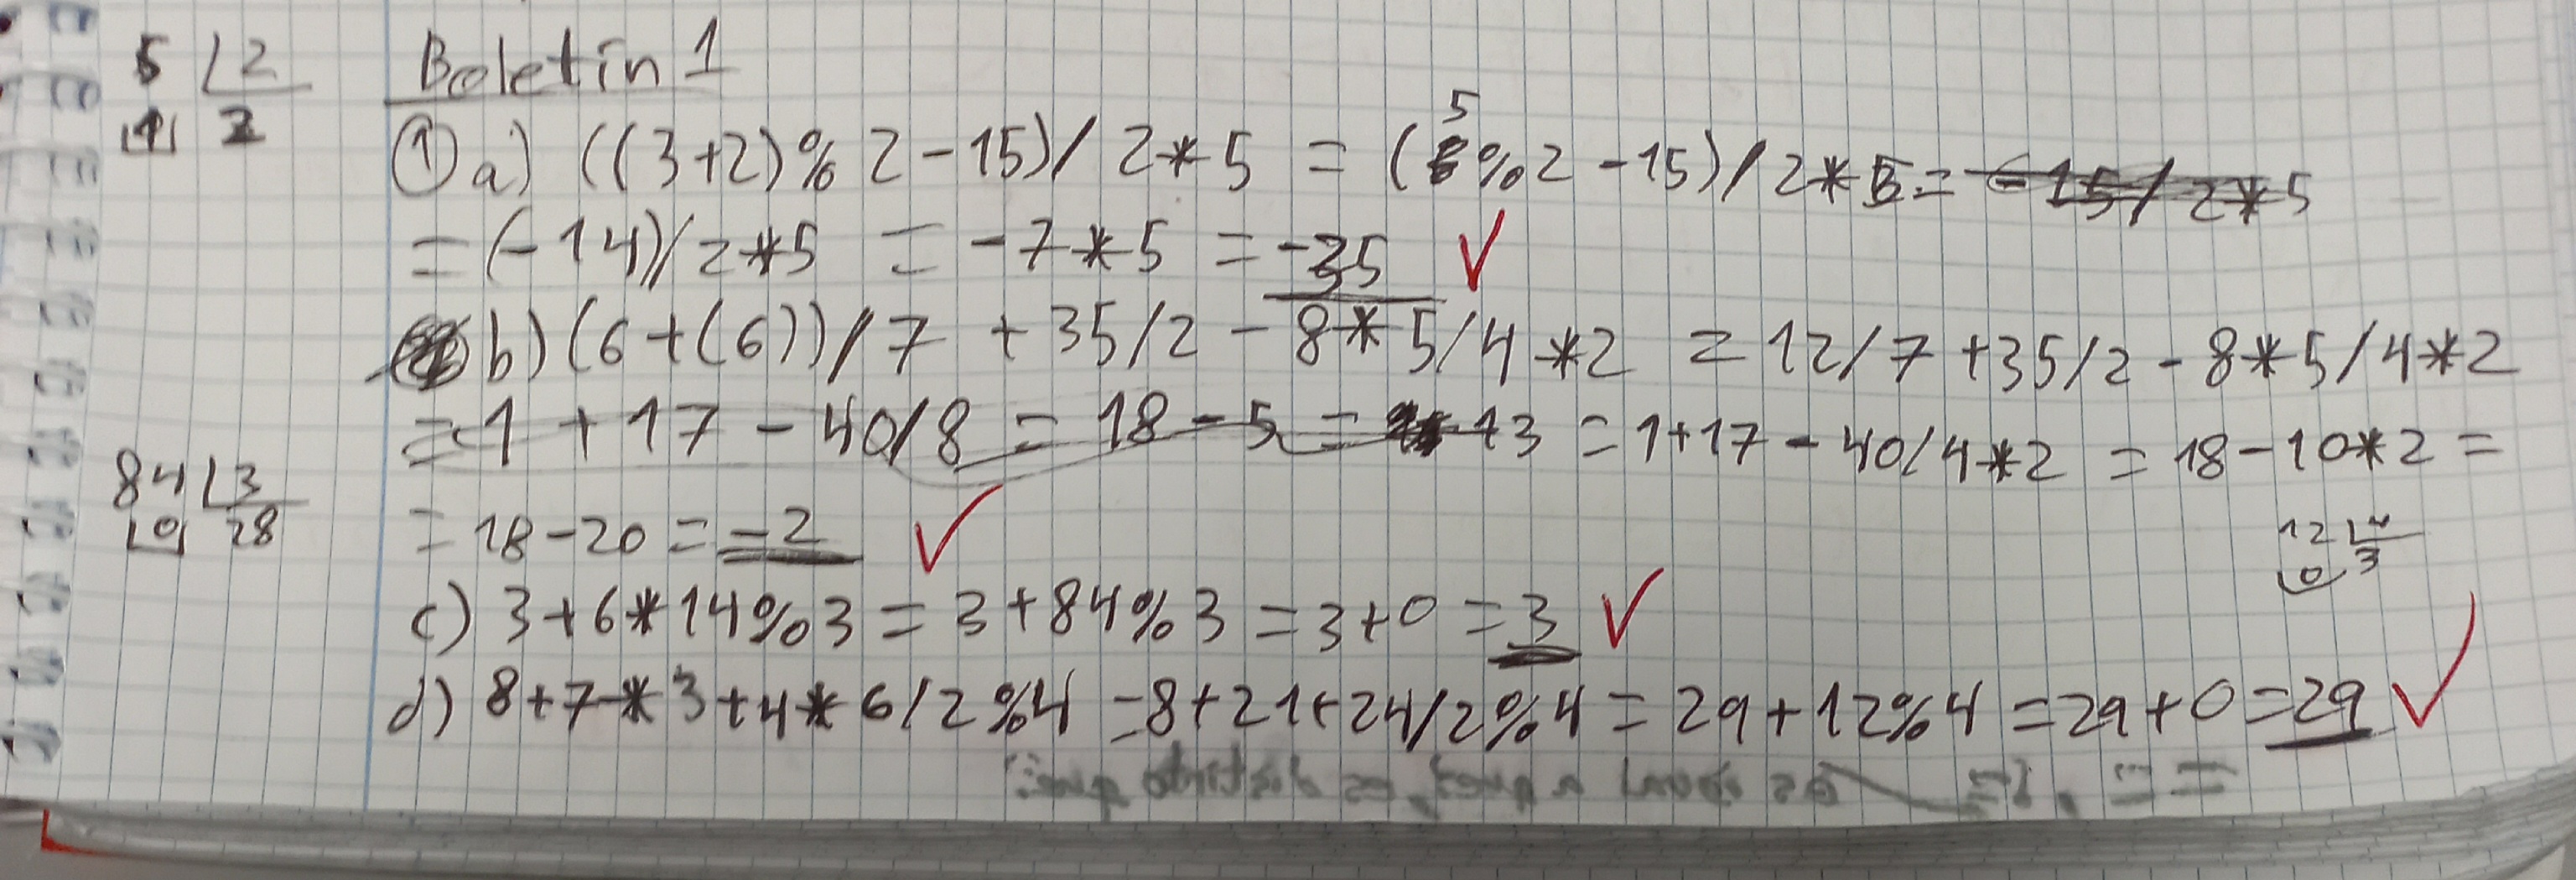 Boletín 1
5 2
1 2
① a) ((3+2)%2-15)/2*5 = (5%2-15)/2*5 = -15/2*5
= (-14)/2*5 = -7*5 = -35 ✓
b) (6+(6))/7 + 35/2 - 8*5/4*2 = 12/7+35/2-8*5/4*2
= 1 + 17 - 40/8 = 18 - 5 = 13 = 1+17-40/4*2 = 18-10*2 =
= 18-20 = -2 ✓
84 3
0 28
12 4
0 3
c) 3+6*14%3 = 3+84%3 = 3+0 = 3 ✓
d) 8+7*3+4*6/2%4 = 8+21+24/2%4 = 29+12%4 = 29+0 = 29 ✓